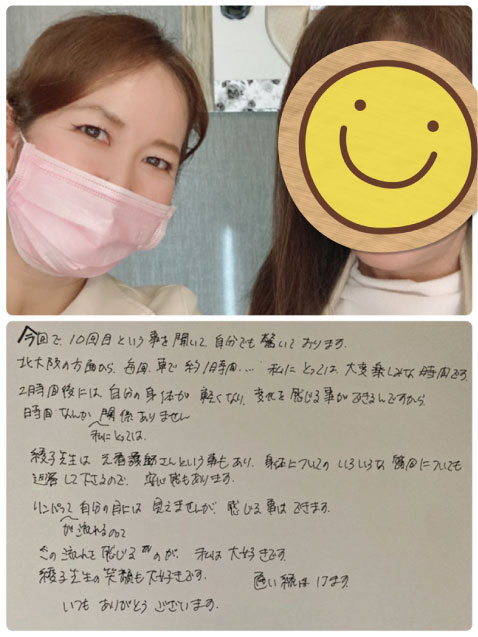 今回で、10回目という事を聞いて、自分でも驚いております。
北大阪の方面から、毎回、車で約1時間、… 私にとっては、大変楽しみな時間です。
2時間後には自分の身体が軽くなり、変化を感じる事ができるんですから
時間なんか関係ありません
私にとっては、
綾子先生は元看護師さんという事もあり、身体についてのいろいろな質問についても
返答して下さるので、安心感もあります。
リンパって自分の目には見えませんが、感じる事はできます。
が流れるのって
その流れを感じるのが、私は大好きです。
綾子先生の笑顔も大好きです。 通い続けます。
いつもありがとうございます。